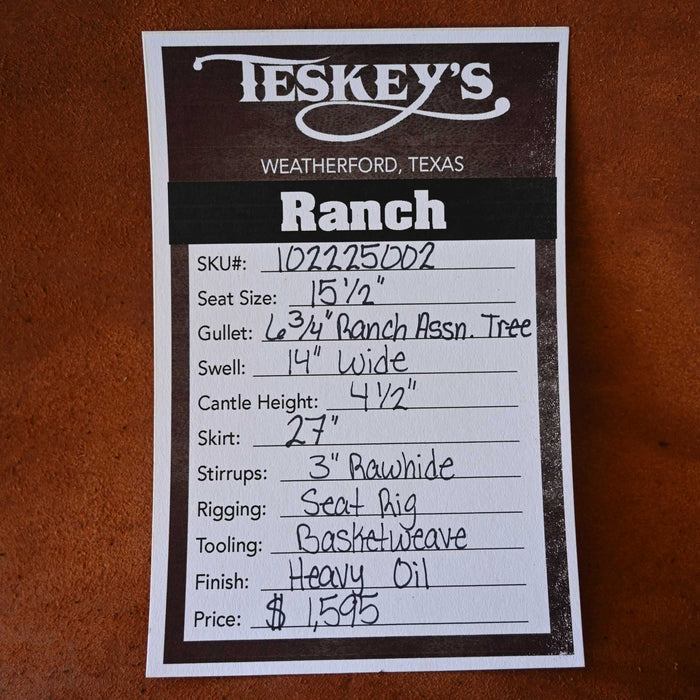 TESKEY'S
WEATHERFORD, TEXAS
Ranch
SKU#: 102225002
Seat Size: 15 1/2"
Gullet: 6 3/4" Ranch Assn. Tree
Swell: 14" Wide
Cantle Height: 4 1/2"
Skirt: 27"
Stirrups: 3" Rawhide
Rigging: Seat Rig
Tooling: Basketweave
Finish: Heavy Oil
Price: $ 1,595